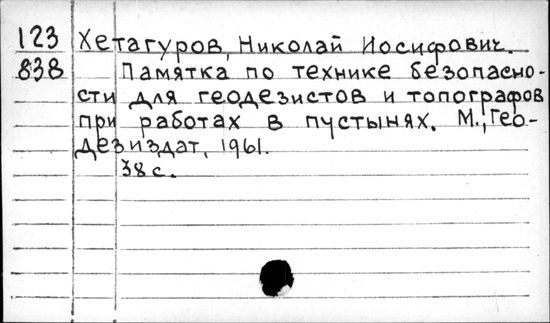 123 Хетагуров, Николай Иосифович.
838 Памятка по технике безопасно-
сти для геодезистов и топографов
при работах в пустынях. М., Гео-
дезиздат, 1961.
38 с.